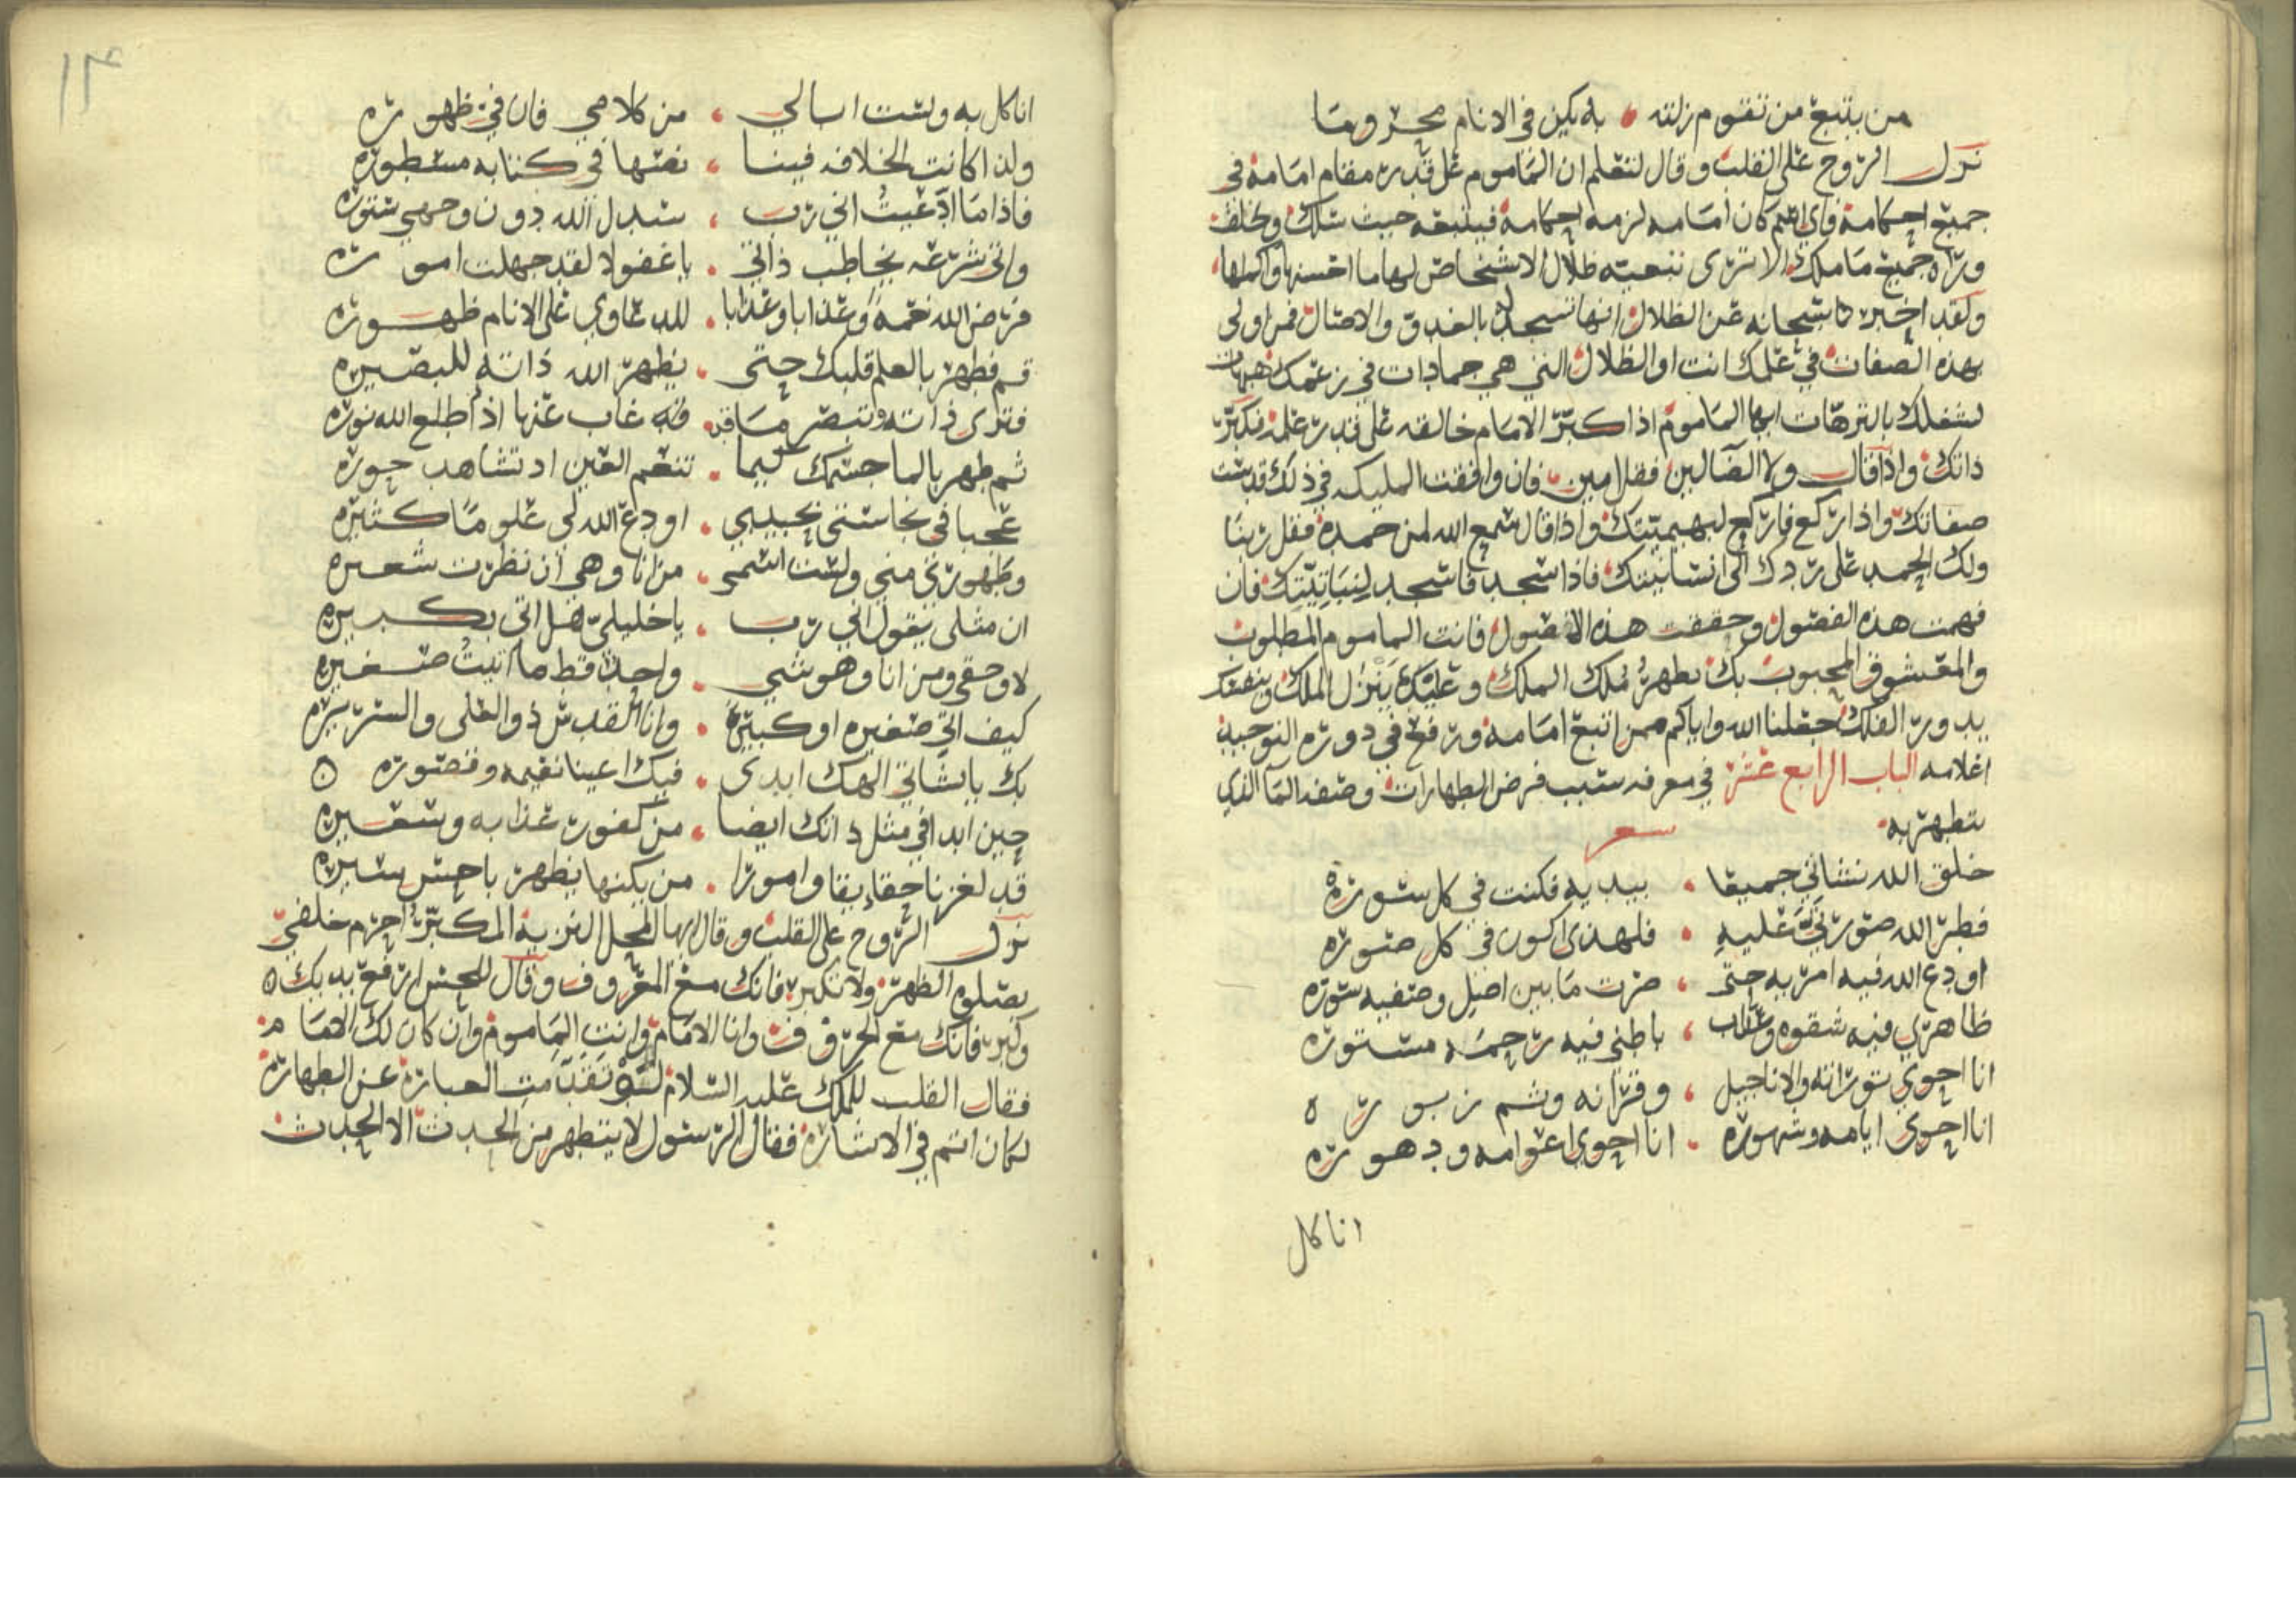 من يتبع من تقوم زلته • به يكن في الانام محروما
نزل الروح على القلب وقال لتعلم ان الماموم على قدر مقام امامه في
جميع احكامه فاي كان امامه لزمه احكامه فيتبعه حيث سلك ويخلف
وراه جميع ما ملك الا ترى تبعيه ظلال الاشخاص لها ما احسنها واكملها
ولقد اخبرنا سبحانه عن الظلال انها تسجد له بالغدو والاصال فمن اولى
بهذه الصفات في علمك انت او الظلال التي هي جمادات في زعمك هيهات
لشغلك بالترهات ايها الماموم اذا كبر الامام خالقه على قدر علمه فكبر
ذاتك واذا قال ولا الضالين فقل امين فان وافقت المليكه في ذلك قدست
صفاتك واذا ركع فاركع لبهيميتك واذا قال سمع الله لمن حمده فقل ربنا
ولك الحمد على ردك الى انسانيتك فاذا سجد فاسجد لنباتيتك فان
فهمت هذه الفصول وحققت هذه الاصول فانت الماموم المطلوب
والمعشوق المحبوب بك يطهر ملك الملك وعليك ينزل الملك وبنفقك
يدور الفلك جعلنا الله واياكم ممن اتبع امامه ورفع في دوره التوحيد
اعلامه الباب الرابع عشر في معرفه سبب فرض الطهارات وصفه الما الذي
يتطهر به
شعر
خلق الله نشاتي جميعا • بيديه فكنت في كل سوره
فطر الله صورتي عليه • فلهذا اكون في كل صوره
اودع الله فيه امر به حتى • صرت ما بين اصيل وصفيه سوره
ظاهري فيه شقوه وعذاب • باطني فيه رحمه مستوره
انا احوي توراته والاناجيل • وفرقانه وثم زبوره
انا احوي ايامه وشهوره • انا احوي اعوامه ودهوره
انا كل
١٣
انا كل به ولست ابالي • من كلامي فان في ظهوره
ولذا كانت الخلافه فينا • نعتها في كتابه مسطوره
فاذا ما ادعيت اني رب • سدل الله دون وجهي ستوره
واتى شرعه يخاطب ذاتي • يا غفولا لقد جهلت اموره
فرض الله نعمه وعذابا وعذابا • للدعاوي على الانام ظهوره
قم فطهر بالعلم قلبك حتى • يظهر الله ذاته للبصيره
فترى ذاته وتبصر ما قد • غاب عنها اذ اطلع الله نوره
ثم طهر بالما جسمك كيما • تنعم العين اذ تشاهد حوره
عجبا في نجاستي بحبيبي • اودع الله لي علوما كثيره
وطهوري مني ولست اسمي • من انا وهي ان نظرت شعيره
ان مثلي يقول اني رب • يا خليلي هل اتى بكبيره
لا وحقي ومن انا وهو شي • واحد قط ما اتيت صغيره
كيف اتي صغيره او كبيره • وانا القدس ذو العلى والسريره
بك يا شاني الهك ابدى • فيك اعينا نعيمه وقصوره
حين ابدا في مثل ذاتك ايضا • من كفور عذابه وسعيره
قد لغزنا حقايقا وامورا • من يكنها يظهر باحسن سيره
نزل الروح على القلب وقال ايها المحل النزيه المكبر احرم خلفي
بصلوة الظهر ولا تكبر فانك مع المعروف وقال للحس ارفع يديك
وكبر فانك مع الحروف وانا الامام وانت الماموم وان كان لك الامام
فقال القلب للملك عليه السلام لو تقدمت العباره عن الطهاره
لكان اتم في الاشاره فقال الرسول لا يتطهر من الحدث الا الحدث